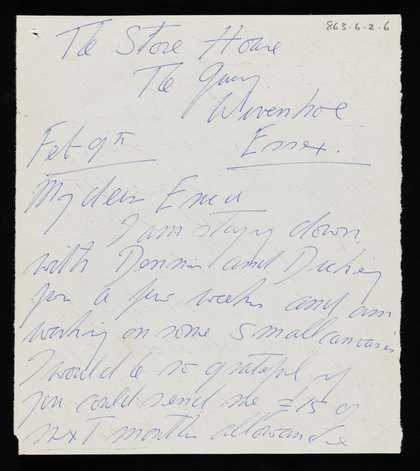 863.6.2.6
The Store House
The Quay
Wivenhoe
Feb 9th Essex.
My dear
I am staying down
with Dennis and Dickey
for a few weeks and am
working on some small canvases
I would be so grateful if
you could send me £15 of
next months allowance